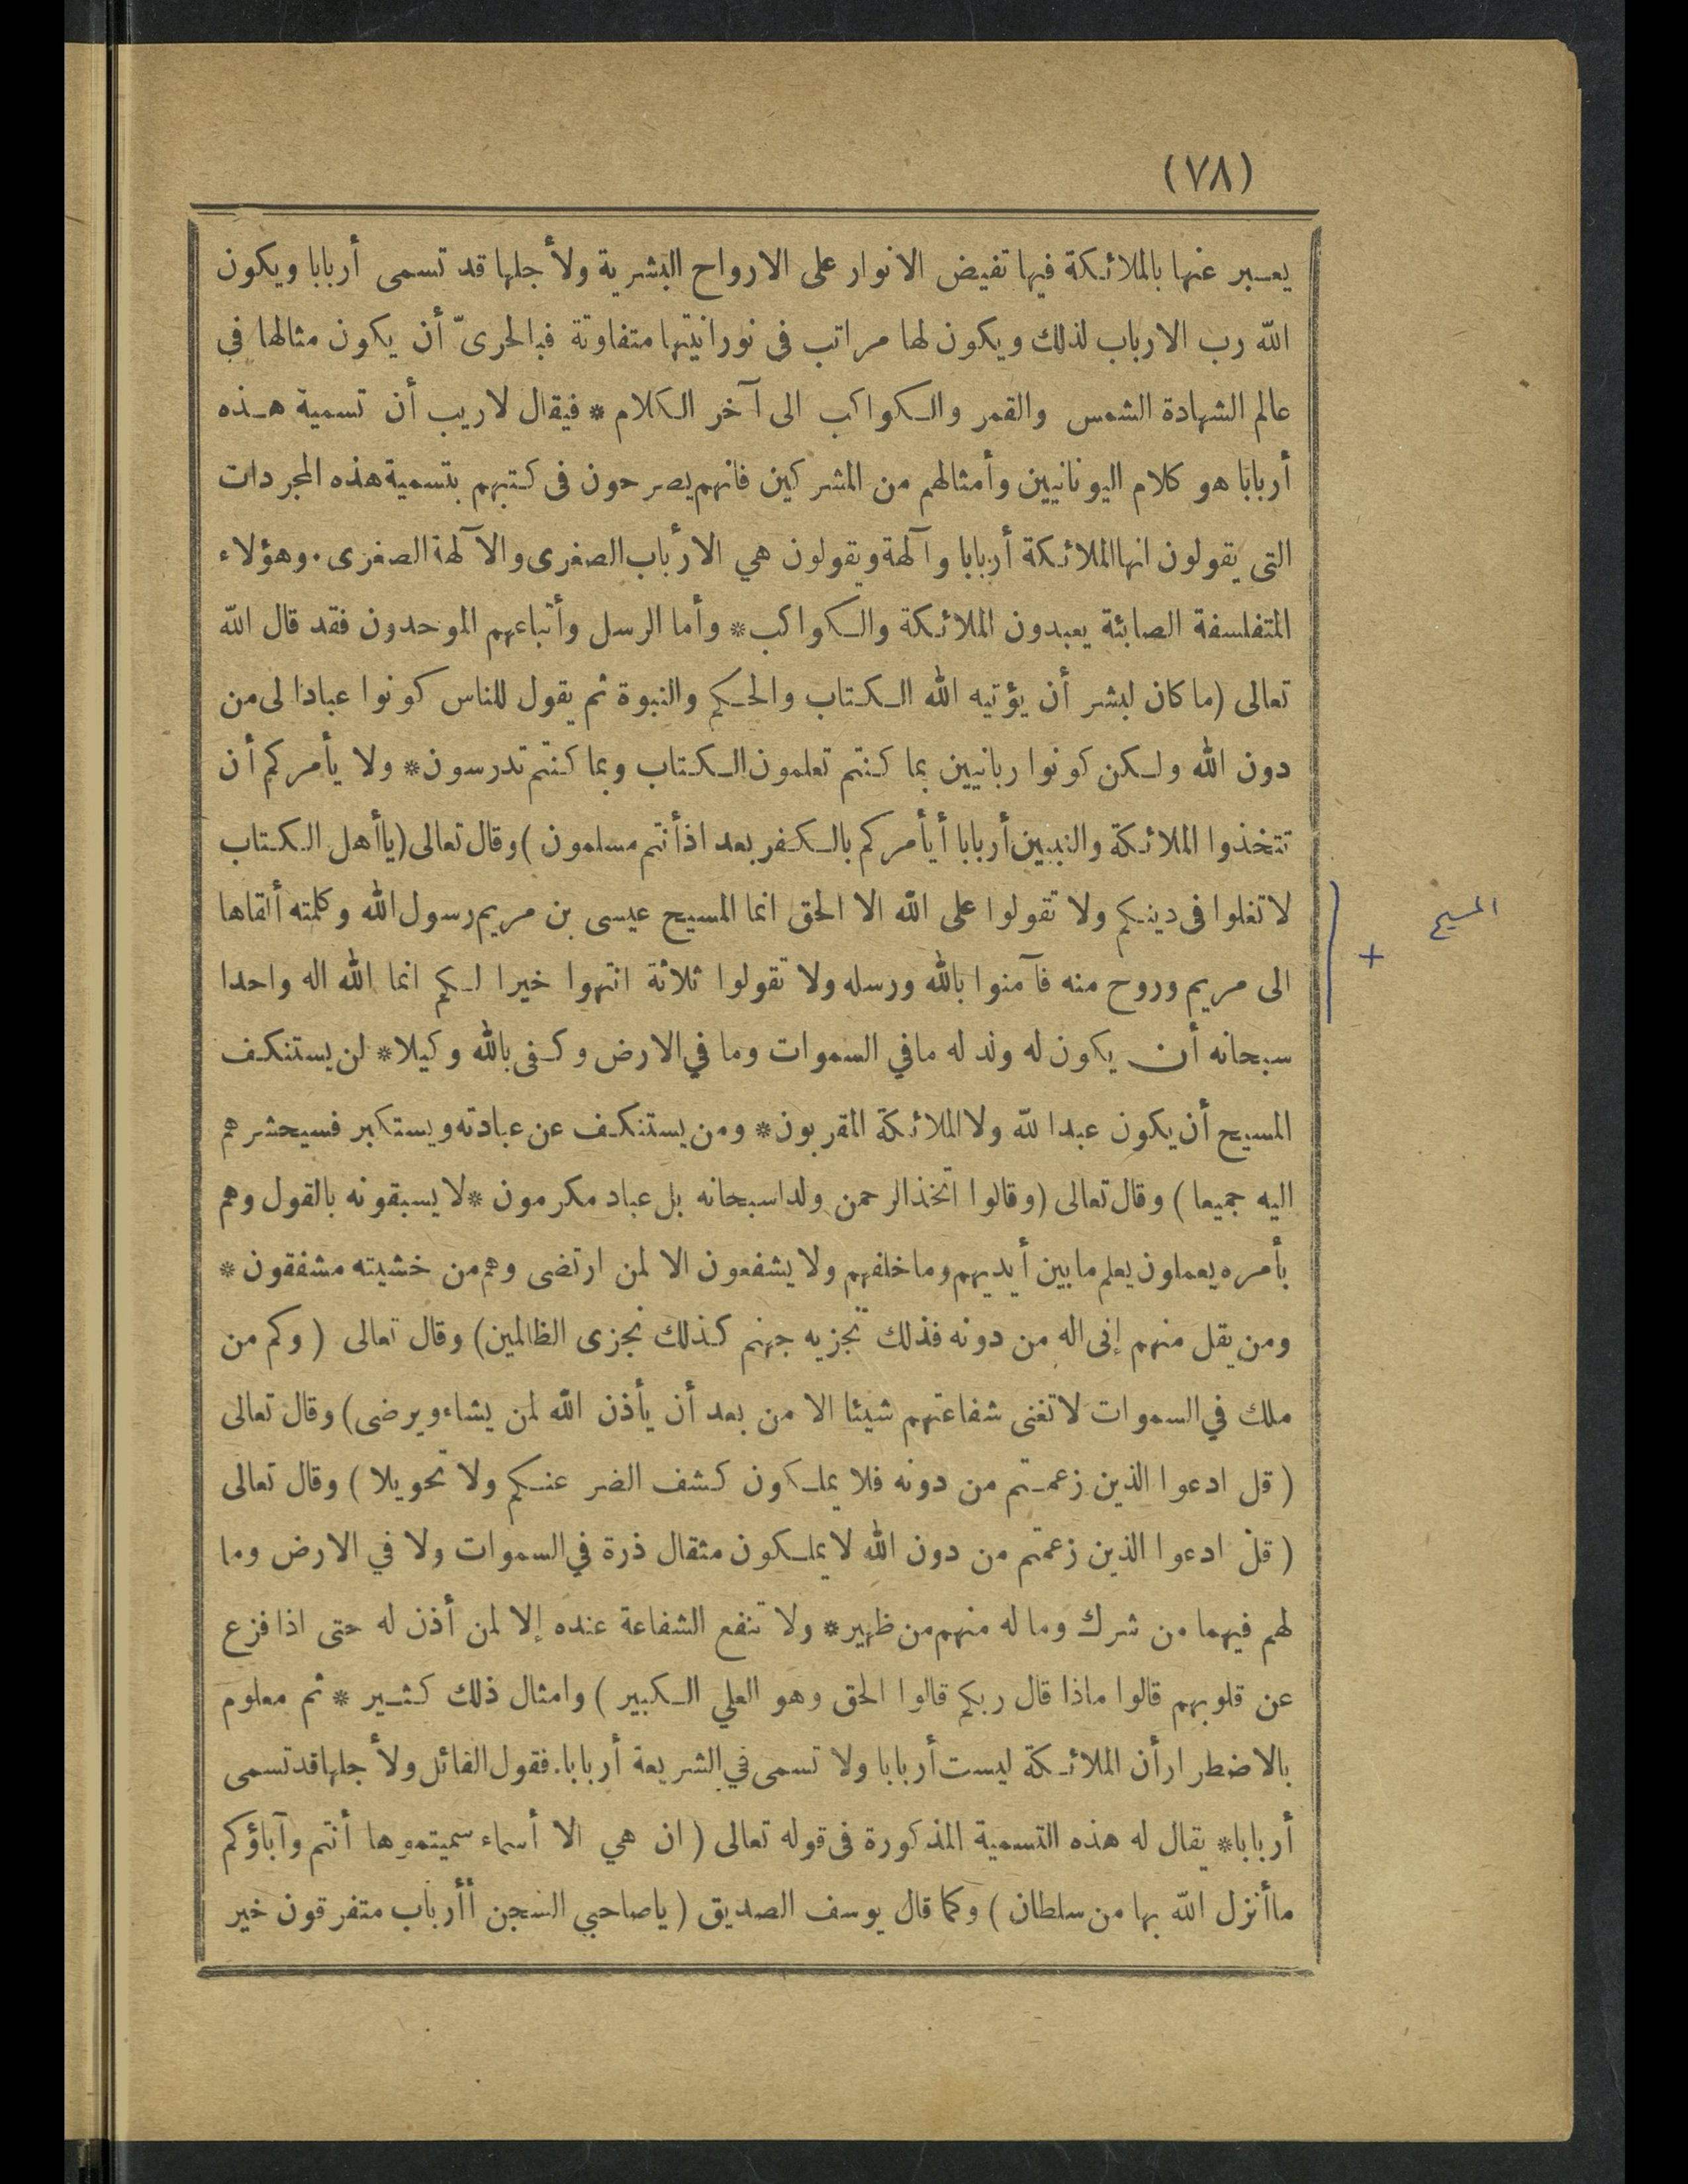 (٧٨)
يعبر عنها بالملائكة فيها تفيض الانوار على الارواح البشرية ولأجلها قد تسمى أربابا ويكون
الله رب الارباب لذلك ويكون لها مراتب فى نورانيتها متفاوتة فبالحرىّ أن يكون مثالها في
عالم الشهادة الشمس والقمر والكواكب الى آخر الكلام * فيقال لاريب أن تسمية هذه
أربابا هو كلام اليونانيين وأمثالهم من المشركين فانهم يصرحون فى كتبهم بتسمية هذه المجردات
التى يقولون انها الملائكة أربابا وآلهة ويقولون هي الارباب الصغرى والآلهة الصغرى. وهؤلاء
المتفلسفة الصابئة يعبدون الملائكة والكواكب* وأما الرسل وأتباعهم الموحدون فقد قال الله
تعالى (ما كان لبشر أن يؤتيه الله الكتاب والحكم والنبوة ثم يقول للناس كونوا عبادا لى من
دون الله ولكن كونوا ربانيين بما كنتم تعلمون الكتاب وبما كنتم تدرسون* ولا يأمركم أن
تتخذوا الملائكة والنبيين أربابا أيأمركم بالكفر بعد اذ أنتم مسلمون) وقال تعالى (يا أهل الكتاب
لا تغلوا فى دينكم ولا تقولوا على الله الا الحق انما المسيح عيسى بن مريم رسول الله وكلمته ألقاها
المسيح
+
الى مريم وروح منه فآمنوا بالله ورسله ولا تقولوا ثلاثة انتهوا خيرا لكم انما الله اله واحدا
سبحانه أن يكون له ولد له مافي السموات وما في الارض وكفى بالله وكيلا* لن يستنكف
المسيح أن يكون عبدا لله ولا الملائكة المقربون* ومن يستنكف عن عبادته ويستكبر فسيحشرهم
اليه جميعا) وقال تعالى (وقالوا اتخذ الرحمن ولدا سبحانه بل عباد مكرمون * لا يسبقونه بالقول وهم
بأمره يعملون يعلم ما بين أيديهم وما خلفهم ولا يشفعون الا لمن ارتضى وهم من خشيته مشفقون *
ومن يقل منهم إنى اله من دونه فذلك نجزيه جهنم كذلك نجزى الظالمين) وقال تعالى (وكم من
ملك في السموات لا تغنى شفاعتهم شيئا الا من بعد أن يأذن الله لمن يشاء ويرضى) وقال تعالى
(قل ادعوا الذين زعمتم من دونه فلا يملكون كشف الضر عنكم ولا تحويلا) وقال تعالى
(قل ادعوا الذين زعمتم من دون الله لا يملكون مثقال ذرة في السموات ولا في الارض وما
لهم فيهما من شرك وما له منهم من ظهير* ولا تنفع الشفاعة عنده إلا لمن أذن له حتى اذا فزع
عن قلوبهم قالوا ماذا قال ربكم قالوا الحق وهو العلي الكبير) وامثال ذلك كثير * ثم معلوم
بالاضطرار أن الملائكة ليست أربابا ولا تسمى في الشريعة أربابا. فقول القائل ولأجلها قد تسمى
أربابا* يقال له هذه التسمية المذكورة فى قوله تعالى (ان هي الا أسماء سميتموها أنتم وآباؤكم
ما أنزل الله بها من سلطان) وكما قال يوسف الصديق (يا صاحبي السجن أأرباب متفرقون خير